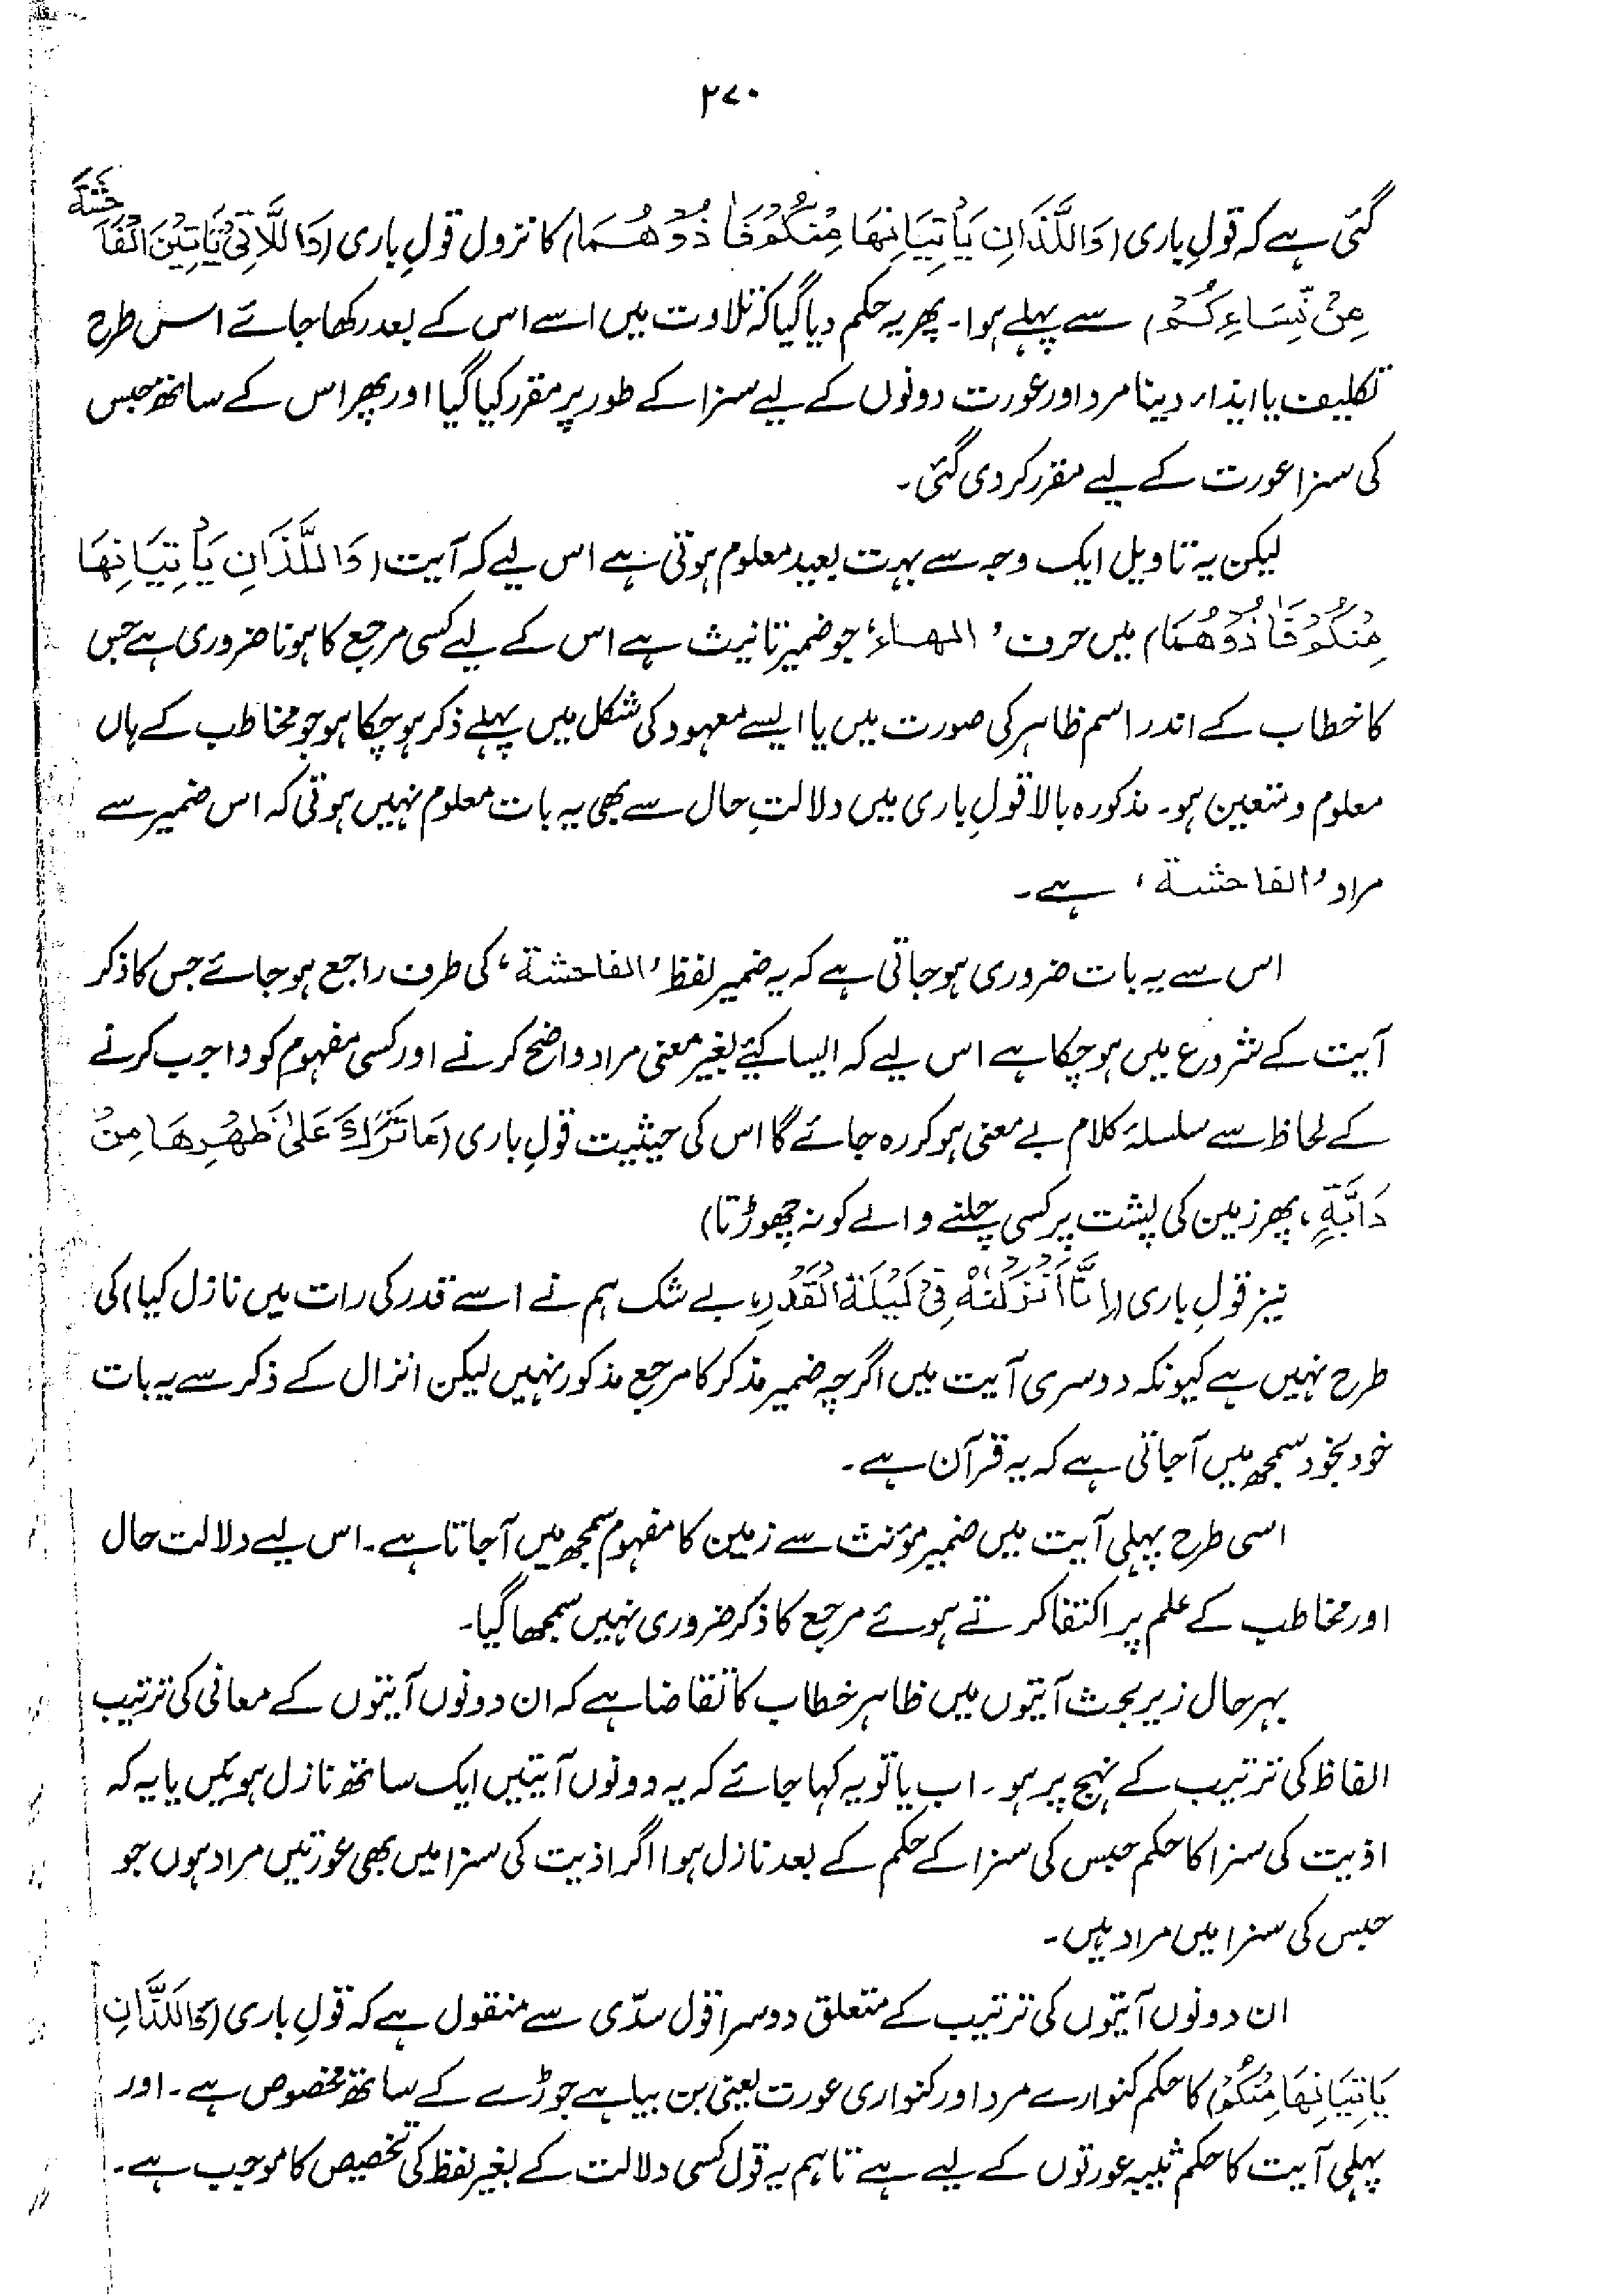 ۲۷۰
گئی ہے کہ قولِ باری (وَاللَّذَانِ يَأْتِيَانِهَا مِنْكُمْ فَاٰذُوْهُمَا) کا نزول قولِ باری (وَاللَّاتِيْ يَأْتِيْنَ الْفَاحِشَةَ
مِنْ نِّسَاءِكُمْ) سے پہلے ہوا۔ پھر یہ حکم دیا گیا کہ تلاوت میں اسے اس کے بعد رکھا جائے اس طرح
تکلیف یا ایذاء دینا مرد اور عورت دونوں کے لیے سزا کے طور پر مقرر کیا گیا اور پھر اس کے ساتھ حبس
کی سزا عورت کے لیے مقرر کردی گئی۔
لیکن یہ تاویل ایک وجہ سے بہت بعید معلوم ہوتی ہے اس لیے کہ آیت (وَاللَّذَانِ يَأْتِيَانِهَا
مِنْكُمْ فَاٰذُوْهُمَا) میں حرف 'الھاء' جو ضمیر تانیث ہے اس کے لیے کسی مرجع کا ہونا ضروری ہے جس
کا خطاب کے اندر اسم ظاہر کی صورت میں یا ایسے معہود کی شکل میں پہلے ذکر ہو چکا ہو جو مخاطب کے ہاں
معلوم و متعین ہو۔ مذکورہ بالا قولِ باری میں دلالتِ حال سے بھی یہ بات معلوم نہیں ہوتی کہ اس ضمیر سے
مراد 'الفاحشة' ہے۔
اس سے یہ بات ضروری ہو جاتی ہے کہ یہ ضمیر لفظ 'الفاحشة' کی طرف راجع ہو جائے جس کا ذکر
آیت کے شروع میں ہو چکا ہے اس لیے کہ ایسا کیئے بغیر معنی مراد واضح کرنے اور کسی مفہوم کو واجب کرنے
کے لحاظ سے سلسلۂ کلام بے معنی ہو کر رہ جائے گا اس کی حیثیت قولِ باری (مَا تَرَكَ عَلىٰ ظَهْرِهَا مِنْ
دَابَّةٍ، پھر زمین کی پشت پر کسی چلنے والے کو نہ چھوڑتا)
نیز قولِ باری (اِنَّا اَنْزَلْنٰهُ فِيْ لَيْلَةِ الْقَدْرِ، بے شک ہم نے اسے قدر کی رات میں نازل کیا) کی
طرح نہیں ہے کیونکہ دوسری آیت میں اگرچہ ضمیر مذکر کا مرجع مذکور نہیں لیکن انزال کے ذکر سے یہ بات
خود بخود سمجھ میں آجاتی ہے کہ یہ قرآن ہے۔
اسی طرح پہلی آیت میں ضمیر مؤنث سے زمین کا مفہوم سمجھ میں آجاتا ہے۔ اس لیے دلالت حال
اور مخاطب کے علم پر اکتفا کرتے ہوئے مرجع کا ذکر ضروری نہیں سمجھا گیا۔
بہرحال زیر بحث آیتوں میں ظاہر خطاب کا تقاضا ہے کہ ان دونوں آیتوں کے معانی کی ترتیب
الفاظ کی ترتیب کے نہج پر ہو۔ اب یا تو یہ کہا جائے کہ یہ دونوں آیتیں ایک ساتھ نازل ہوئیں یا یہ کہ
اذیت کی سزا کا حکم حبس کی سزا کے حکم کے بعد نازل ہوا اگر اذیت کی سزا میں بھی عورتیں مراد ہوں جو
حبس کی سزا میں مراد ہیں۔
ان دونوں آیتوں کی ترتیب کے متعلق دوسرا قول سدّی سے منقول ہے کہ قولِ باری (وَاللَّذَانِ
يَأْتِيَانِهَا مِنْكُمْ) کا حکم کنوارے مرد اور کنواری عورت یعنی بن بیاہے جوڑے کے ساتھ مخصوص ہے۔ اور
پہلی آیت کا حکم ثیبہ عورتوں کے لیے ہے تاہم یہ قول کسی دلالت کے بغیر لفظ کی تخصیص کا موجب ہے۔